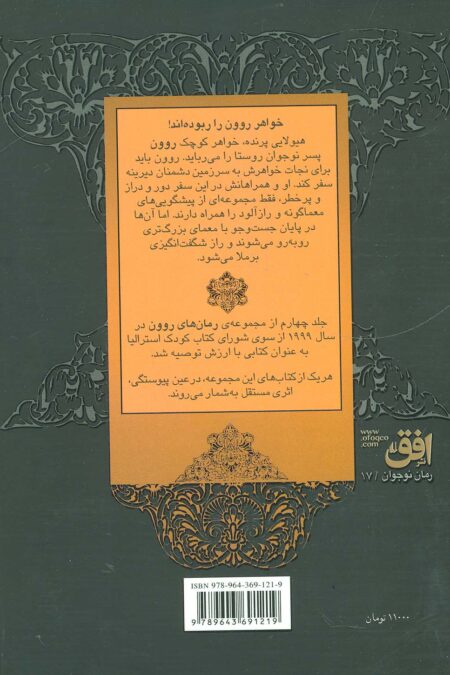 خواهر روون را ربوده‌اند!
هیولایی پرنده، خواهر کوچک روون
پسر نوجوان روستا را می‌رباید. روون باید
برای نجات خواهرش به سرزمین دشمنان دیرینه
سفر کند. او و همراهانش در این سفر دور و دراز
و پرخطر، فقط مجموعه‌ای از پیشگویی‌های
معماگونه و رازآلود را همراه دارند. اما آن‌ها
در پایان جست‌وجو با معمای بزرگ‌تری
روبه‌رو می‌شوند و راز شگفت‌انگیزی
برملا می‌شود.
جلد چهارم از مجموعه‌ی رمان‌های روون در
سال ۱۹۹۹ از سوی شورای کتاب کودک استرالیا
به عنوان کتابی با ارزش توصیه شد.
هریک از کتاب‌های این مجموعه، درعین پیوستگی،
اثری مستقل به‌شمار می‌روند.
www.
ofoqco
.com
نشر افق
رمان نوجوان / ۱۷
ISBN 978-964-369-121-9
9 789643 691219
۱۱۰۰۰ تومان